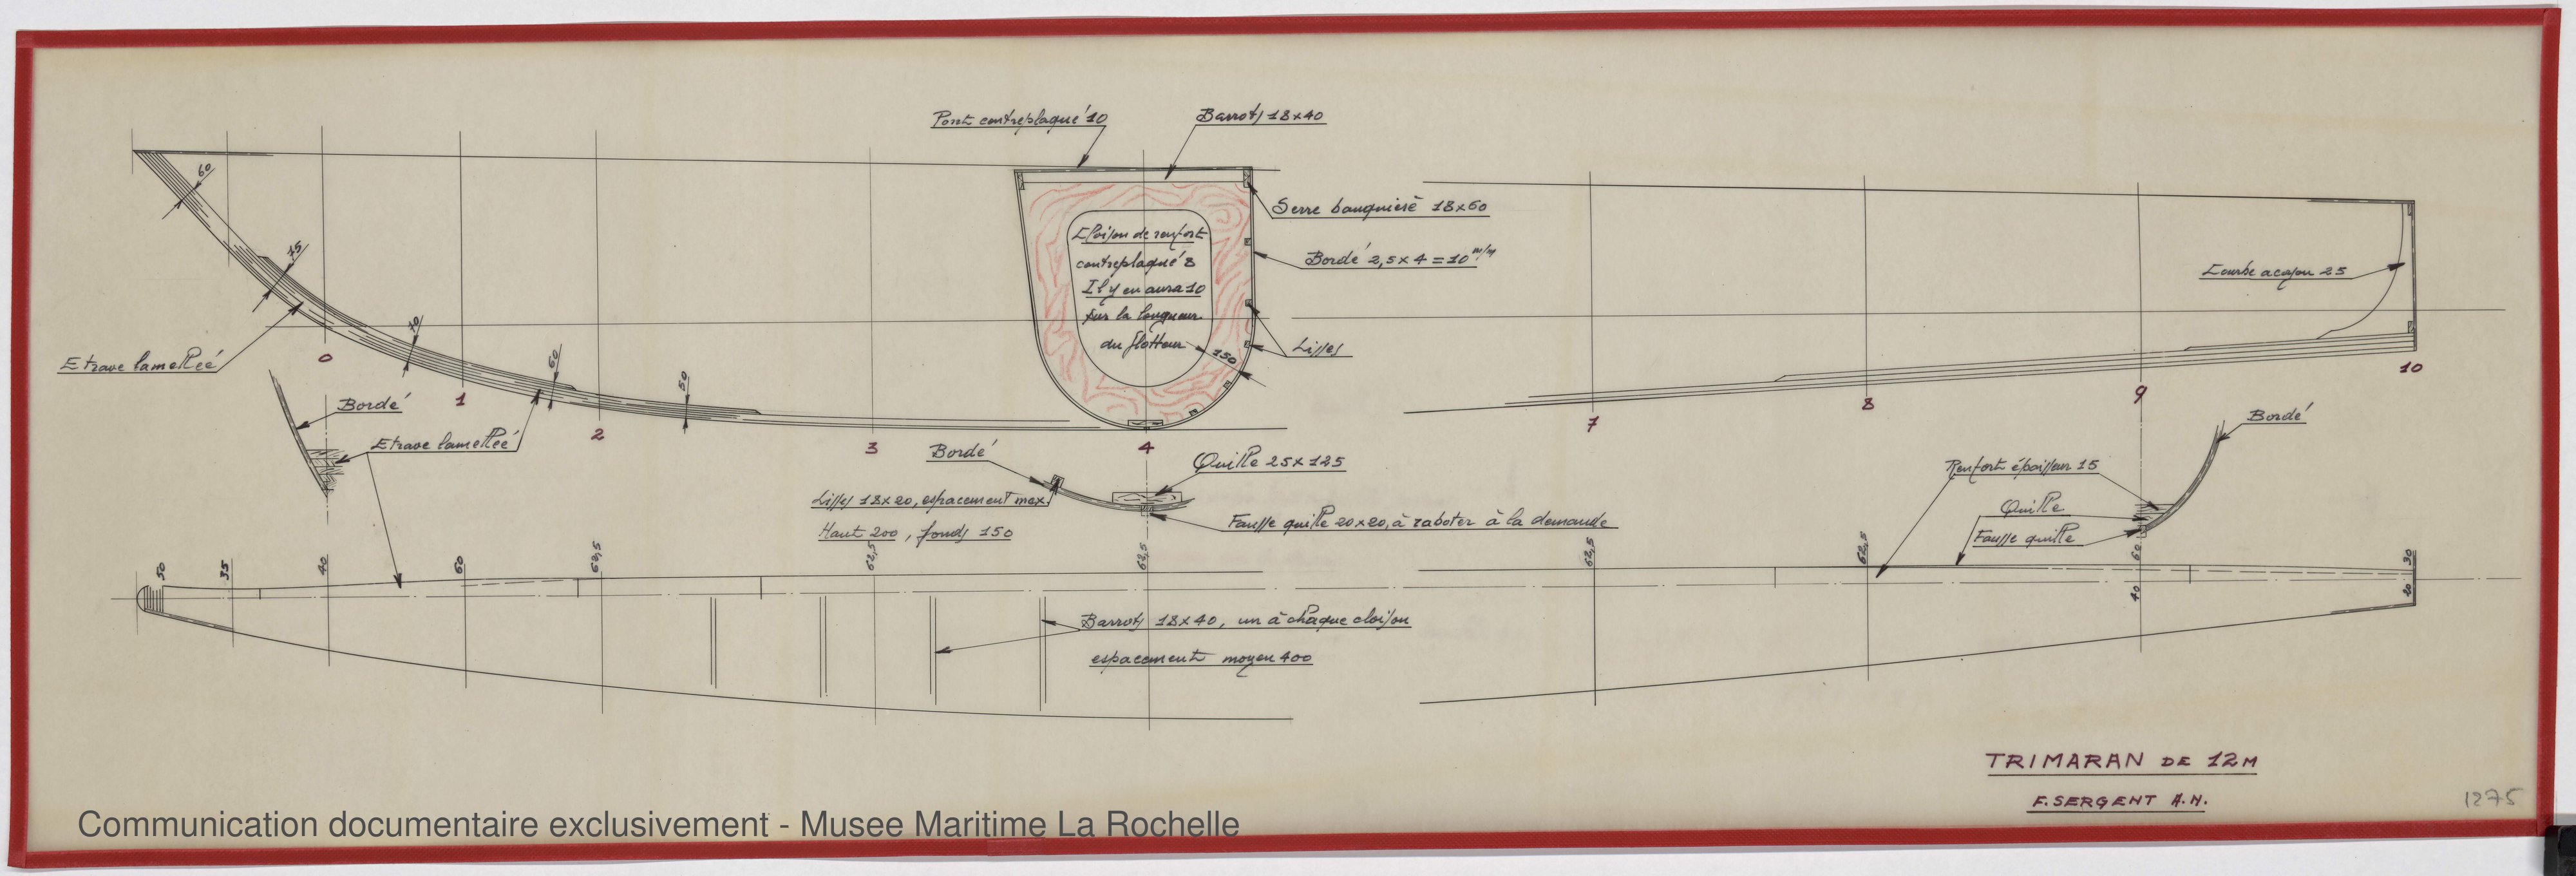 Pont contreplaqué 10
Barrots 18x40
60
75
70
60
50
Serre bauquière 18x60
Bordé 2,5x4=10 m/m
Cloison de renfort
contreplaqué 8
Il y en aura 10
sur la longueur
du flotteur
150
Lisses
Courbe acajou 25
Etrave lamellée
0
1
2
3
4
7
8
9
10
Bordé
Etrave lamellée
Bordé
Quille 25x125
Lisses 18x20, espacement max
Haut 200, fonds 150
Fausse quille 20x20, à raboter à la demande
Bordé
Renfort épaisseur 15
Quille
Fausse quille
50
35
40
60
62,5
62,5
62,5
62,5
62,5
60
40
30
20
Barrots 18x40, un à chaque cloison
espacement moyen 400
TRIMARAN DE 12M
F. SERGENT A.N.
1275
Communication documentaire exclusivement - Musee Maritime La Rochelle